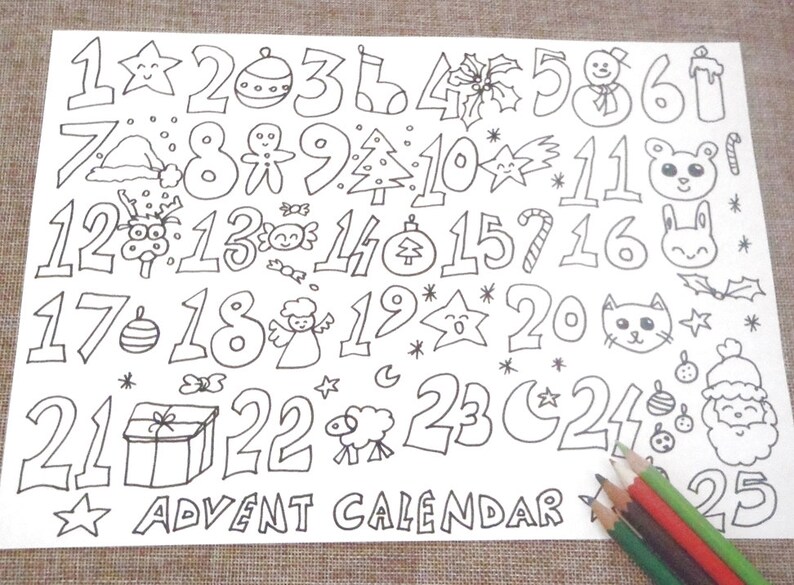 1 2 3 4 5 6
7 8 9 10 11
12 13 14 15 16
17 18 19 20
21 22 23 24
25
ADVENT CALENDAR